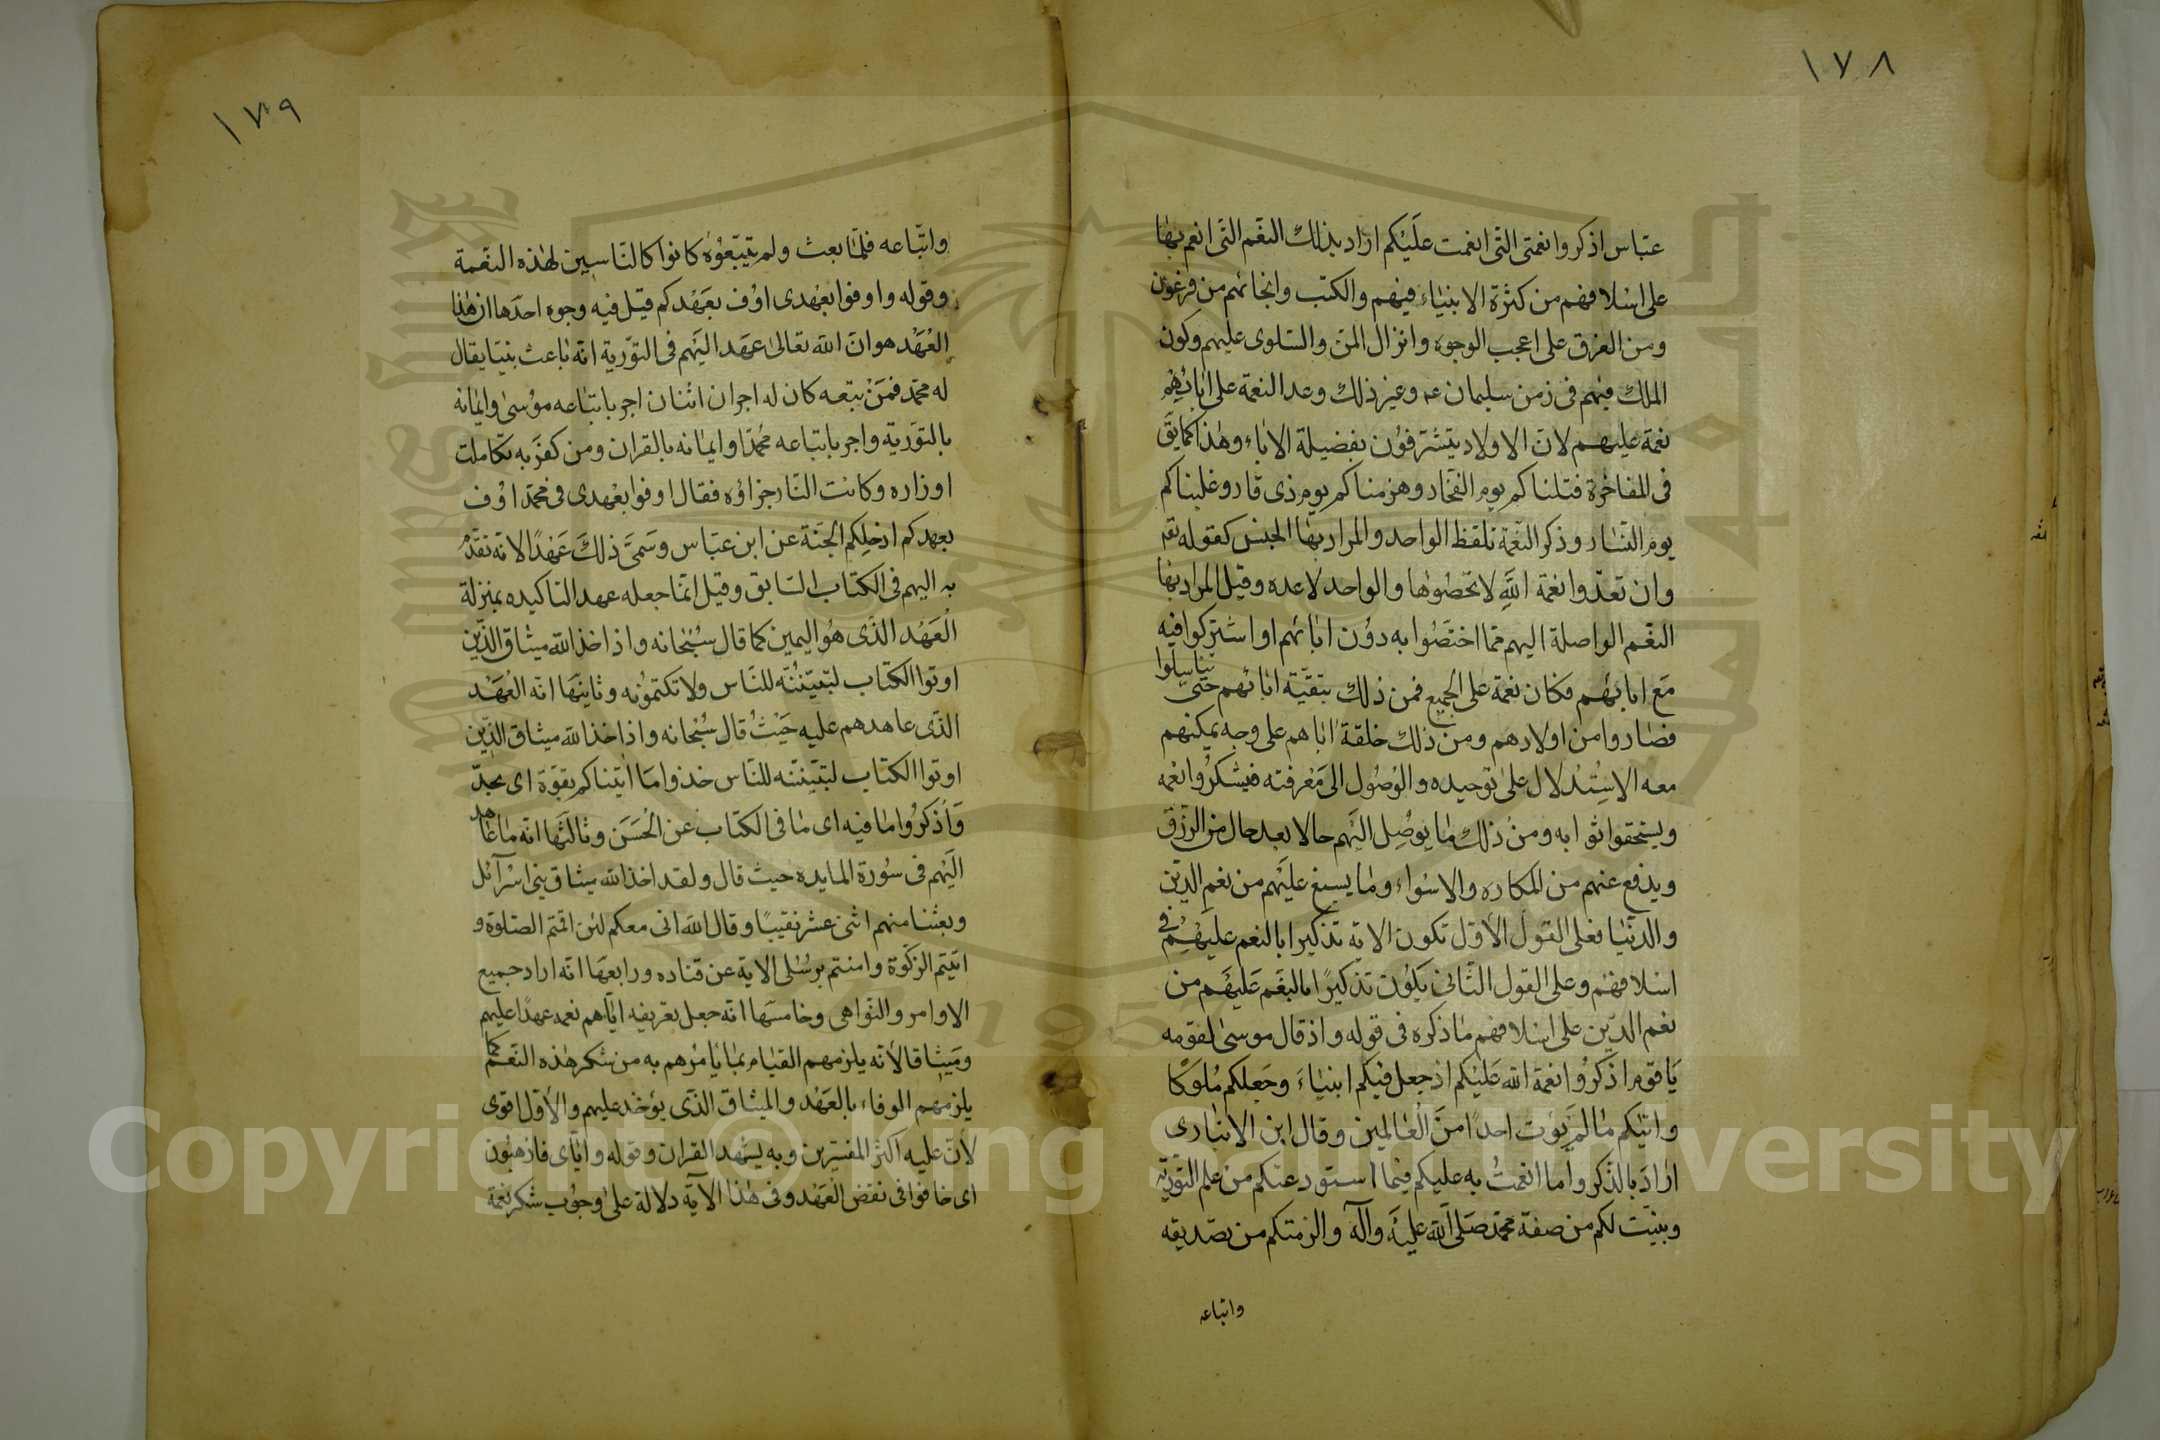 ١٧٨
عباس اذكروا نعمتى التى انعمت عليكم اراد بذلك النعم التى انعم بها
على اسلافهم من كثرة الانبياء فيهم والكتب وانجائهم من فرعون
ومن الغرق على اعجب الوجوه وانزال المن والسلوى عليهم وكون
الملك فيهم فى زمن سليمان عه وغير ذلك وعد النعمة على ابائهم
نعمة عليهم لان الاولاد يتشرفون بفضيلة الاباء وهذا كما يق
فى المفاخرة قتلناكم يوم الفخار وهزمناكم يوم ذى قار وغلبناكم
يوم النسار وذكر النعمة بلفظ الواحد والمراد بها الجنس كقوله تعم
وان تعدوا نعمة الله لا تحصوها والواحد لا عده وقيل المراد بها
النعم الواصلة اليهم مما اختصوا به دون ابائهم او اشتركوا فيه
مع ابائهم فكان نعمة على الجميع فمن ذلك بتقية ابائهم حتى تناسلوا
فصاروا من اولادهم ومن ذلك خلقة اباهم على وجه يمكنهم
معه الاستدلال على توحيده والوصول الى معرفته فيشكروا نعمه
ويستحقوا ثوابه ومن ذلك ما يوصل اليهم حالا بعد حال من الرزق
ويدفع عنهم من المكاره والاسواء وما يسبغ عليهم من نعم الدين
والدنيا فعلى القول الاول تكون الاية تذكيرا بالنعم عليهم فى
اسلافهم وعلى القول الثانى يكون تذكيرا بالنعم عليهم من
نعم الدين على اسلافهم ما ذكره فى قوله واذ قال موسى لقومه
يا قوم اذكروا نعمة الله عليكم اذ جعل فيكم انبياء وجعلكم ملوكا
واتيكم ما لم يؤت احدا من العالمين وقال ابن الانبارى
اراد بالذكر واما انعمت به عليكم فيما استودعتكم من علم التورية
وبنيت لكم من صفة محمد صلى الله عليه وآله والزمتكم من تصديقه
واتباعه
١٧٩
واتباعه فلما بعث ولم يتبعوه كانوا كالناسين لهذه النعمة
وقوله واوفوا بعهدى اوف بعهدكم قيل فيه وجوه احدها ان هذا
العهد هو ان الله تعالى عهد اليهم فى التورية انه باعث نبيا يقال
له محمد فمن تبعه كان له اجران اثنان اجر باتباعه موسى وايمانه
بالتورية واجر باتباعه محمدا وايمانه بالقران ومن كفر به تكاملت
اوزاره وكانت النار جزاؤه فقال اوفوا بعهدى فى محمد اوف
بعهدكم ادخلكم الجنة عن ابن عباس وسمى ذلك عهدا لانه تقدم
به اليهم فى الكتاب السابق وقيل انما جعله عهدا لتاكيده بمنزلة
العهد الذى هو اليمين كما قال سبحانه واذ اخذ الله ميثاق الذين
اوتوا الكتاب لتبيننه للناس ولا تكتمونه وثانيها انه العهد
الذى عاهدهم عليه حيث قال سبحانه واذ اخذ الله ميثاق الذين
اوتوا الكتاب لتبيننه للناس خذوا ما اتيناكم بقوة اى بجد
واذكروا ما فيه اى ما فى الكتاب عن الحسن وثالثها انه ما عاهد
اليهم فى سورة المايده حيث قال ولقد اخذ الله ميثاق بنى اسرآئل
وبعثنا منهم اثنى عشر نقيبا وقال الله انى معكم لئن اقمتم الصلوة و
اتيتم الزكوة وامنتم برسلى الاية عن قتاده ورابعها انه اراد جميع
الاوامر والنواهى وخامسها انه جعل تعريفه اياهم نعمه عهدا عليهم
وميثاقا لانه يلزمهم القيام بما يامرهم به من شكر هذه النعم كما
يلزمهم الوفاء بالعهد والميثاق الذى يؤخذ عليهم والاول اقوى
لان عليه اكثر المفسرين وبه يشهد القران وقوله واياى فارهبون
اى خافوا فى نقض العهد وفى هذا الآية دلالة على وجوب شكر نعمة
Copyright © King Saud University